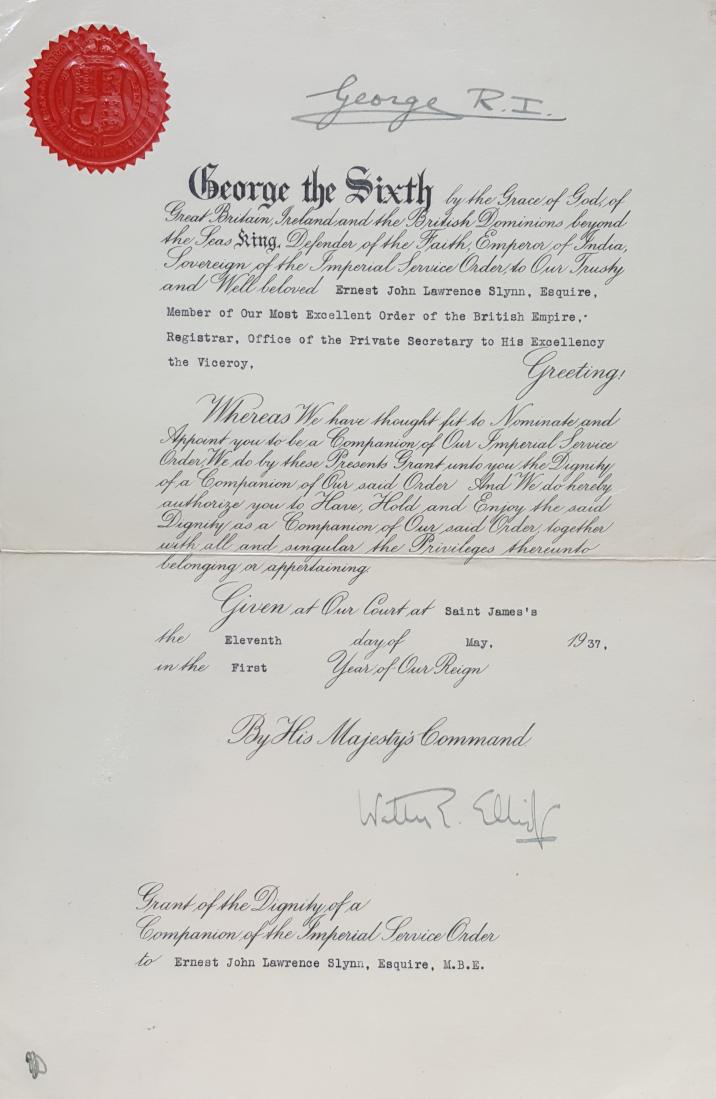 George R.I.
George the Sixth by the Grace of God, of
Great Britain, Ireland and the British Dominions beyond
the Seas King, Defender of the Faith, Emperor of India,
Sovereign of the Imperial Service Order, to Our Trusty
and Well beloved Ernest John Lawrence Slynn, Esquire,
Member of Our Most Excellent Order of the British Empire,
Registrar, Office of the Private Secretary to His Excellency
the Viceroy,
Greeting!
Whereas We have thought fit to Nominate and
Appoint you to be a Companion of Our Imperial Service
Order, We do by these Presents Grant unto you the Dignity
of a Companion of Our said Order And We do hereby
authorize you to Have, Hold and Enjoy the said
Dignity as a Companion of Our said Order, together
with all and singular the Privileges thereunto
belonging or appertaining.
Given at Our Court at Saint James's
the Eleventh day of May, 1937,
in the First Year of Our Reign
By His Majesty's Command
Walter E. Elliot
Grant of the Dignity of a
Companion of the Imperial Service Order
to Ernest John Lawrence Slynn, Esquire, M.B.E.